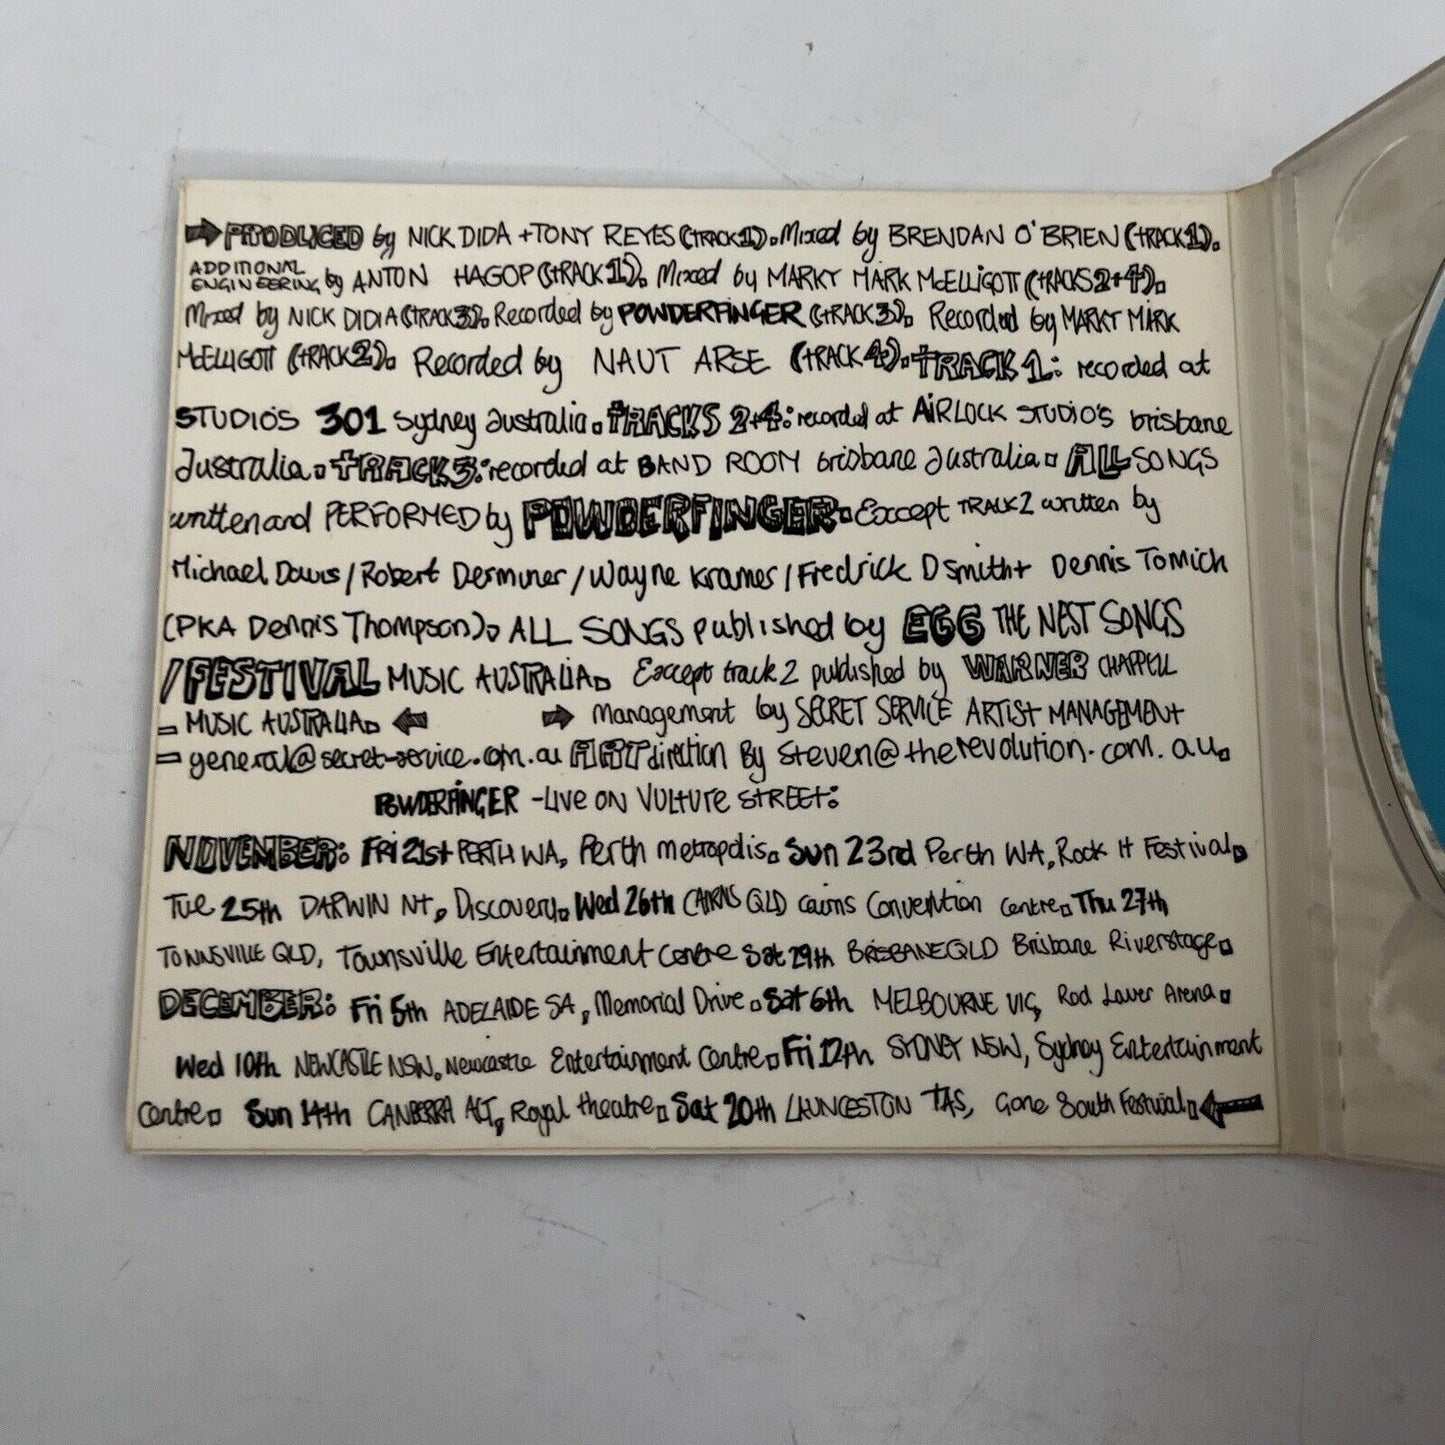 PRODUCED by NICK DIDA + TONY REYES (TRACK 1). Mixed by BRENDAN O'BRIEN (TRACK 1).
ADDITIONAL ENGINEERING by ANTON HAGOP (TRACK 1). Mixed by MARKY MARK McELLIGOTT (TRACKS 2+4).
Mixed by NICK DIDIA (TRACK 3). Recorded by POWDERFINGER (TRACK 3). Recorded by MARKY MARK
McELLIGOTT (TRACK 2). Recorded by NAUT ARSE (TRACK 4). TRACK 1: recorded at
STUDIO'S 301 Sydney australia. TRACKS 2+4: recorded at AiRLOCK STUDIO'S brisbane
Australia. TRACK 3: recorded at BAND ROOM brisbane australia. ALL SONGS
written and PERFORMED by POWDERFINGER. Except TRACK 2 written by
Michael Davis / Robert Derminer / Wayne Kramer / Fredrick D Smith + Dennis Tomich
(PKA Dennis Thompson). ALL SONGS published by EGG THE NEST SONGS
/ FESTIVAL MUSIC AUSTRALIA. Except track 2 published by WARNER CHAPPELL
MUSIC AUSTRALIA. Management by SECRET SERVICE ARTIST MANAGEMENT
general@secret-service.com.au ART direction By steven@therevolution.com.au.
POWDERFINGER - LIVE ON VULTURE STREET:
NOVEMBER: Fri 21st PERTH WA, Perth metropolis. Sun 23rd Perth WA, Rock It Festival.
Tue 25th DARWIN NT, Discovery. Wed 26th CAIRNS QLD cairns Convention centre. Thu 27th
TOWNSVILLE QLD, Townsville Entertainment Centre Sat 29th BRISBANE QLD Brisbane Riverstage.
DECEMBER: Fri 5th ADELAIDE SA, Memorial Drive. Sat 6th MELBOURNE VIC, Rod Laver Arena.
Wed 10th NEWCASTLE NSW. Newcastle Entertainment Centre. Fri 12th SYDNEY NSW, Sydney Entertainment
Centre. Sun 14th CANBERRA ACT, Royal theatre. Sat 20th LAUNCESTON TAS, Gone South Festival.